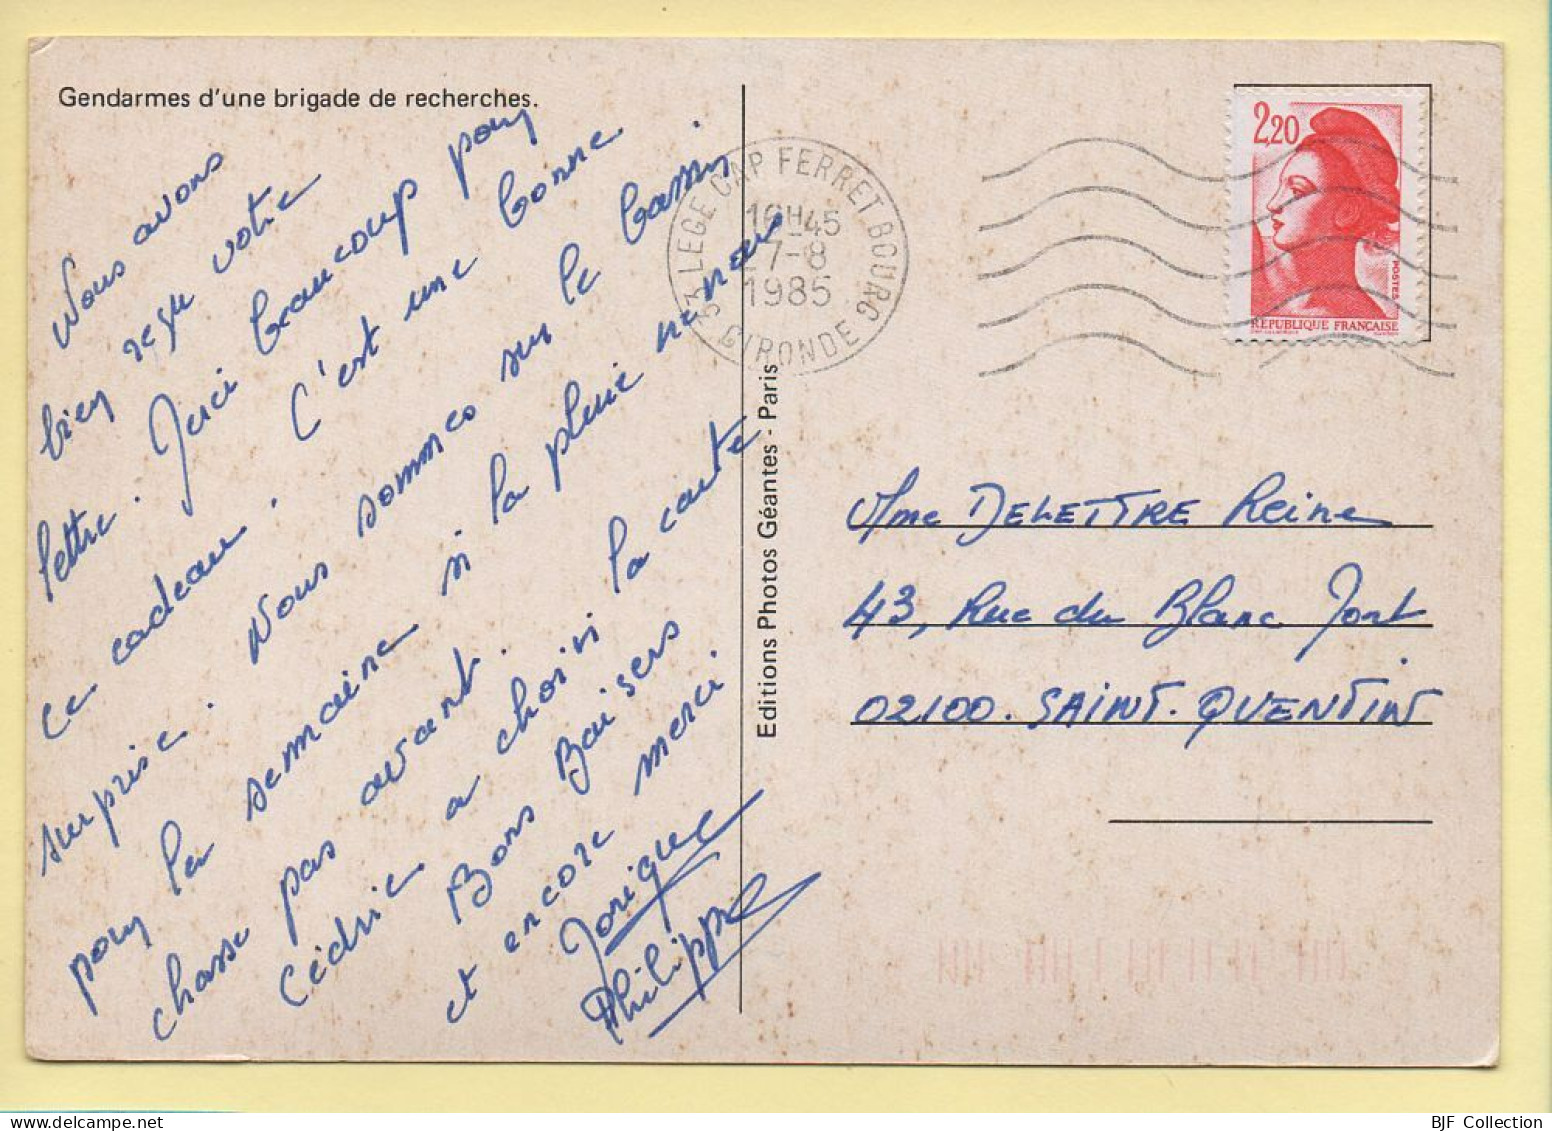 Gendarmes d'une brigade de recherches.
Nous avons
bien reçu votre
lettre. Merci beaucoup pour
ce cadeau. C'est une bonne
surprise. Nous sommes sur le bassin
pour la semaine si la pluie ne nous
chasse pas avant.
Cédric a choisi la carte
Bons Baisers
et encore merci
Monique
Philippe
33 LEGE CAP FERRET BOURG
16H45
7-8
1985
GIRONDE
Editions Photos Géantes - Paris
2,20
POSTES
REPUBLIQUE FRANÇAISE
Mme DELETTRE Reine
43, Rue du Blanc Mont
02100. SAINT. QUENTIN
BJF Collection